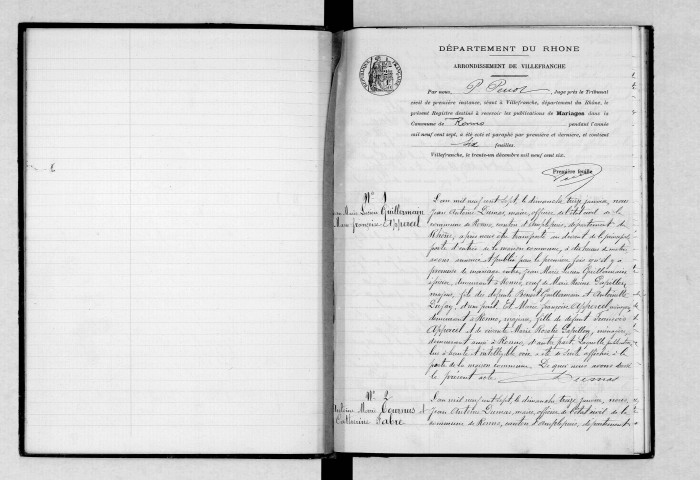 DÉPARTEMENT DU RHONE
ARRONDISSEMENT DE VILLEFRANCHE
RÉPUBLIQUE FRANÇAISE
Par nous, Juge près le Tribunal
civil de première instance, séant à Villefranche, département du Rhône, le
présent Registre destiné à recevoir les publications de Mariages dans la
Commune de Ronno pendant l'année
mil neuf cent sept, a été coté et paraphé par première et dernière, et contient
six feuilles.
Villefranche, le trente-un décembre mil neuf cent six.
Première feuille
N° 1
Marie Lucien Guillermain
Marie françoise Appercel
L'an mil neuf cent sept, le dimanche treize janvier, nous
Jean Antoine Dumas maire, officier de l'état civil de la
commune de Ronno, canton d'Amplepuis, département du
Rhône, après nous être transporté au devant de la principale
porte d'entrée de la maison commune, à dix heures du matin
avons annoncé et publié pour la première fois qu'il y a
promesse de mariage entre Jean Marie Lucien Guillermain
demeurant à Ronno, veuf de Marie Papillon
majeur, fils des défunts Benoît Guillermain et Antoinette
Dufay, d'une part. Et Marie Françoise Appercel
demeurant à Ronno, majeure, fille de défunt François
Appercel et de vivante Marie Rosalie Papillon, ménagère
demeurant aussi à Ronno, d'autre part. Laquelle publication
lue à haute et intelligible voix, a été de suite affichée à la
porte de la maison commune. De quoi nous avons dressé
le présent acte. Dumas
N° 2
Antoine Marie Cournus et
Catherine Fabre
L'an mil neuf cent sept, le dimanche treize janvier, nous
Jean Antoine Dumas, maire, officier de l'état civil de la
commune de Ronno, canton d'Amplepuis, département